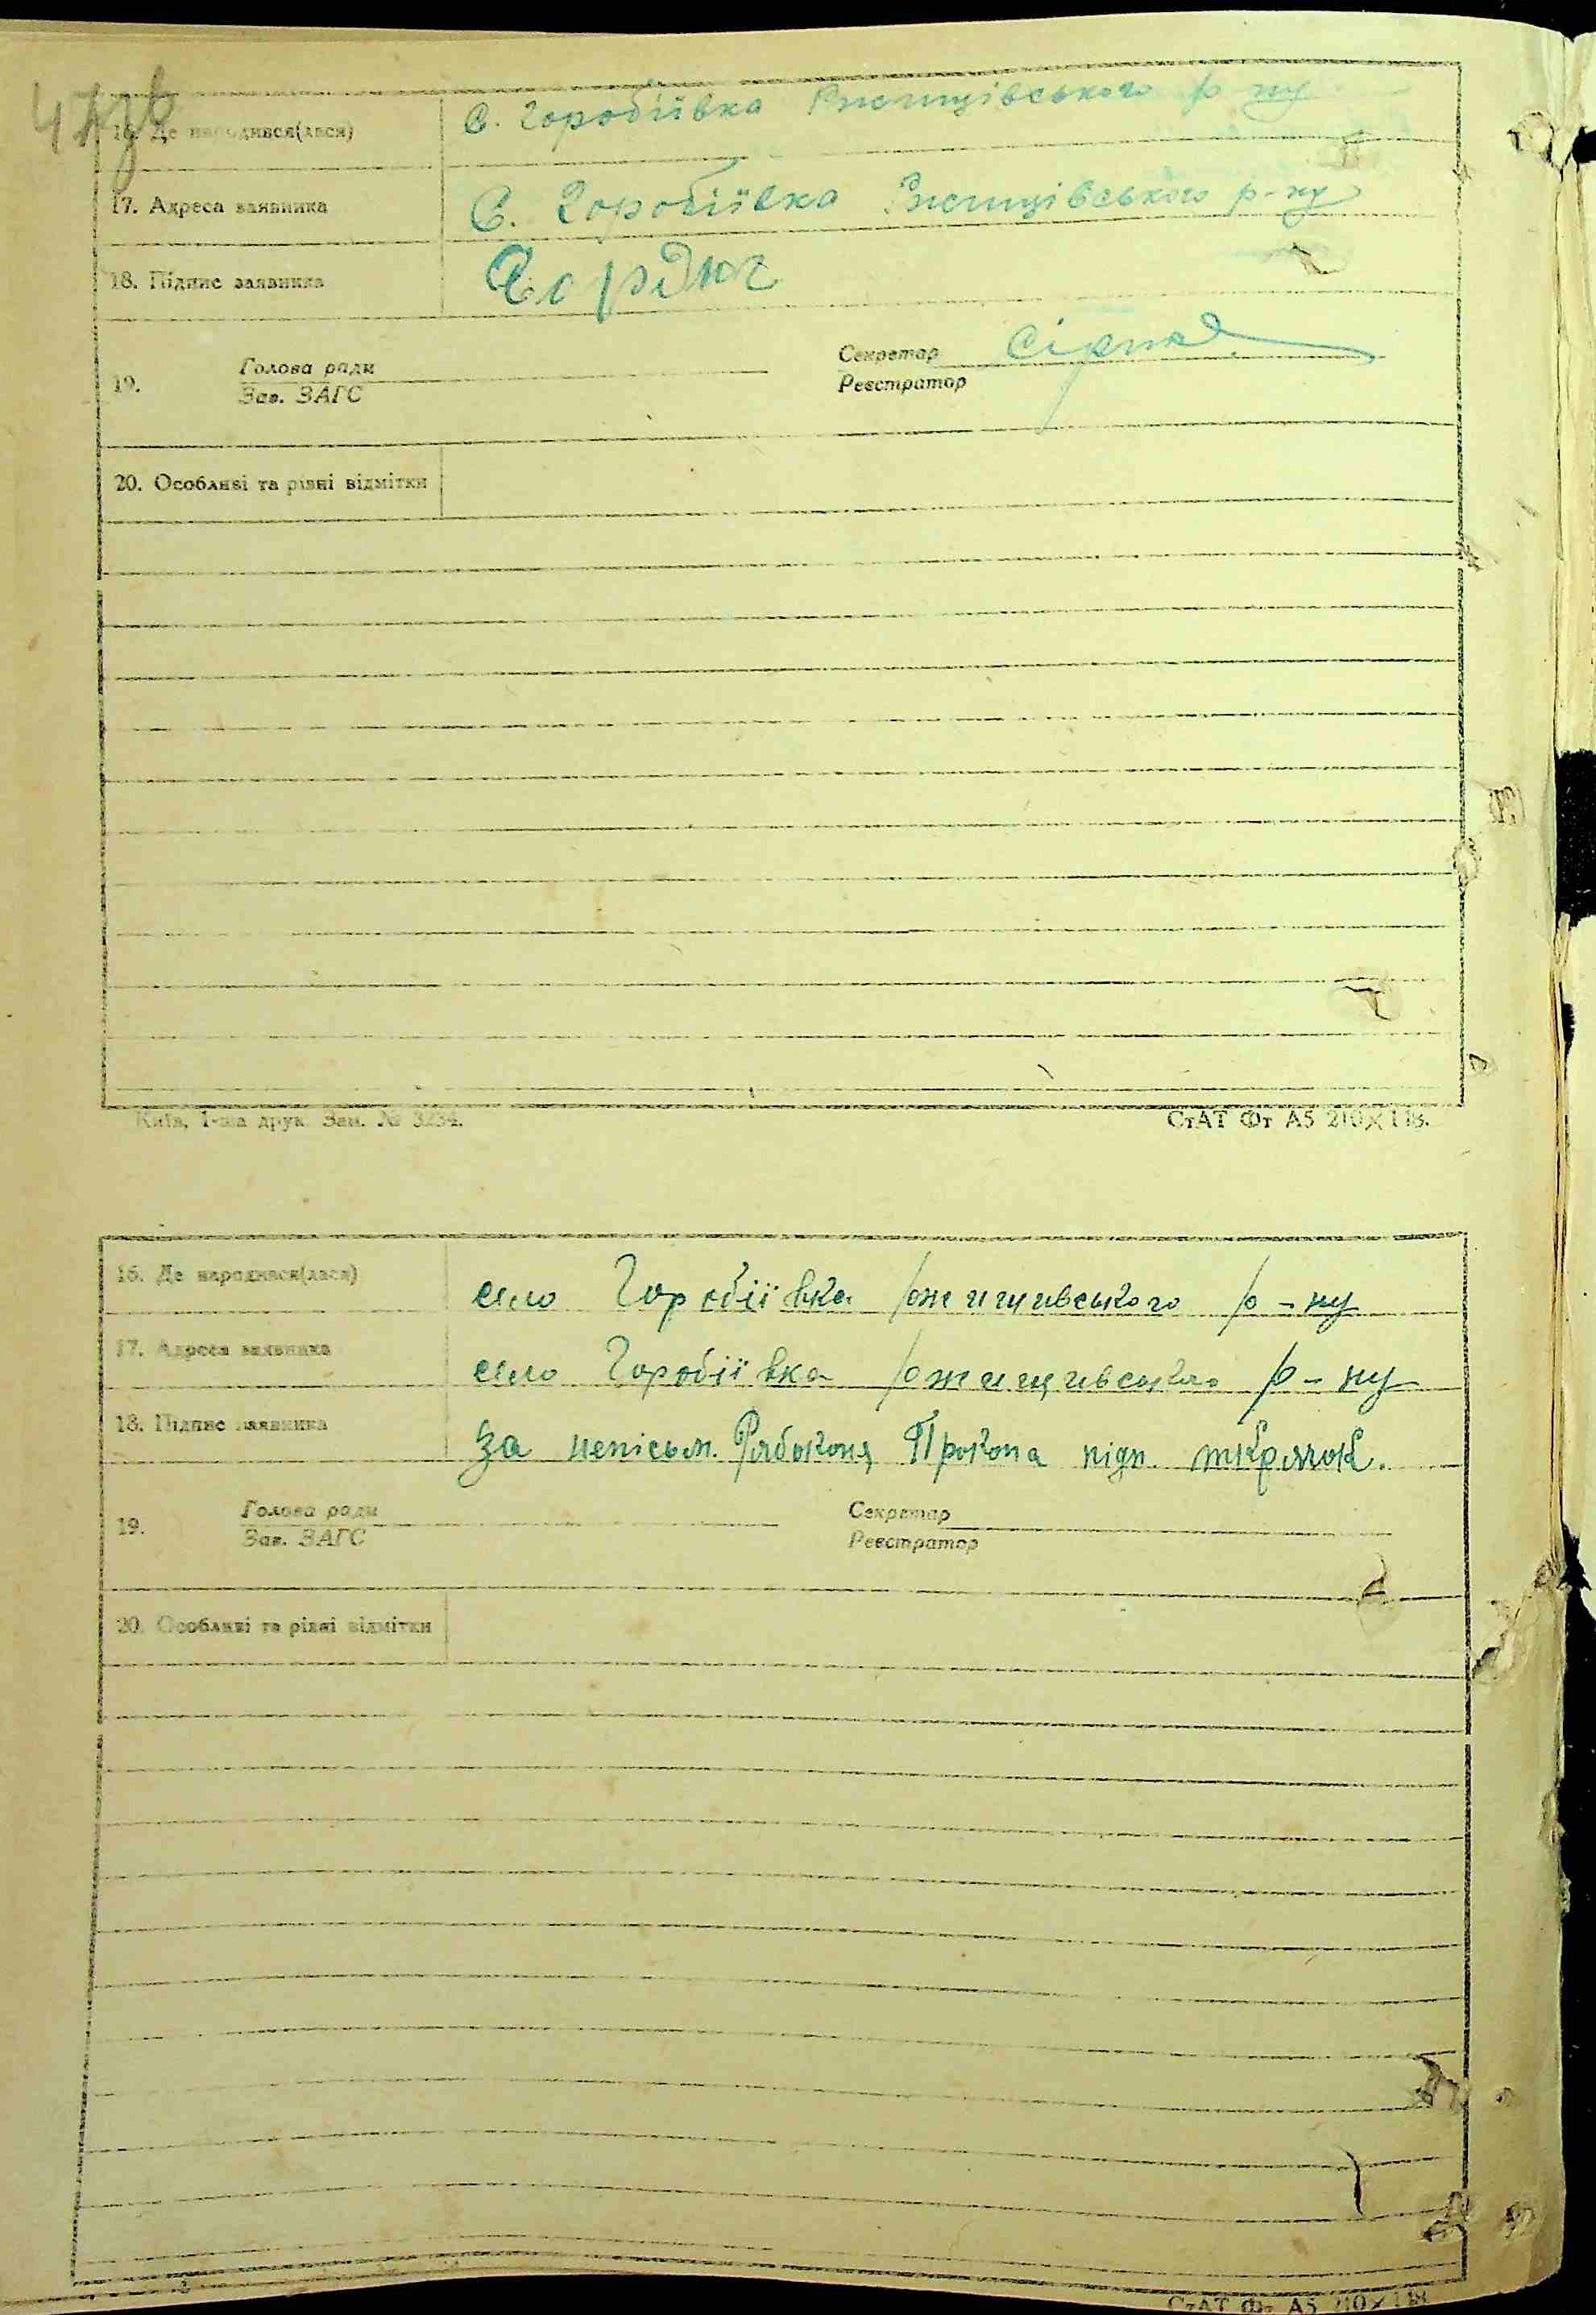 16. Де народився(лася) С. Горобіївка Ржищівського р-ну
17. Адреса заявника С. Горобіївка Ржищівського р-ну
18. Підпис заявника
19. Голова ради Секретар
Зав. ЗАГС Реєстратор
20. Особливі та різні відмітки
Київ, 1-ша друк. Зам. № 3234. СтАТ Фт А5 210×148.
16. Де народився(лася) село Горобіївка ржищивського р-ну
17. Адреса заявника село Горобіївка ржищивського р-ну
18. Підпис заявника За неписьм. Рябоконя Прокопа підп.
19. Голова ради Секретар
Зав. ЗАГС Реєстратор
20. Особливі та різні відмітки
СтАТ Фт А5 210×148